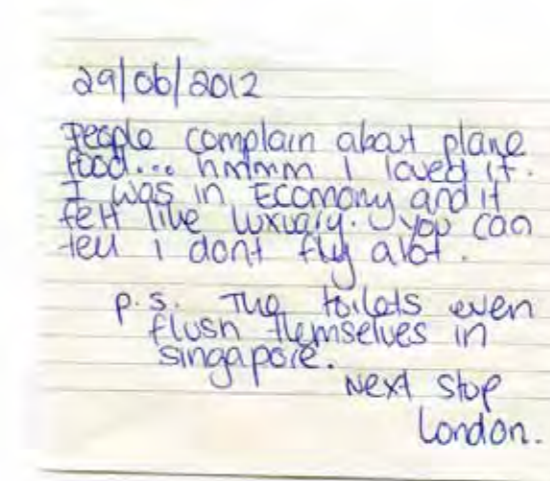 29/06/2012
People complain about plane
food... hmmm I loved it.
I was in Economy and it
felt like luxuary. You can
tell i dont fly alot.
p.s. The toilets even
flush themselves in
singapore.
Next stop
London.